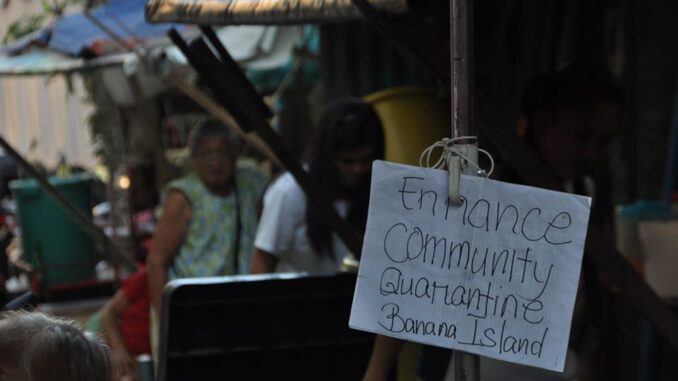 Enhance
Community
Quarantine
Banana Island